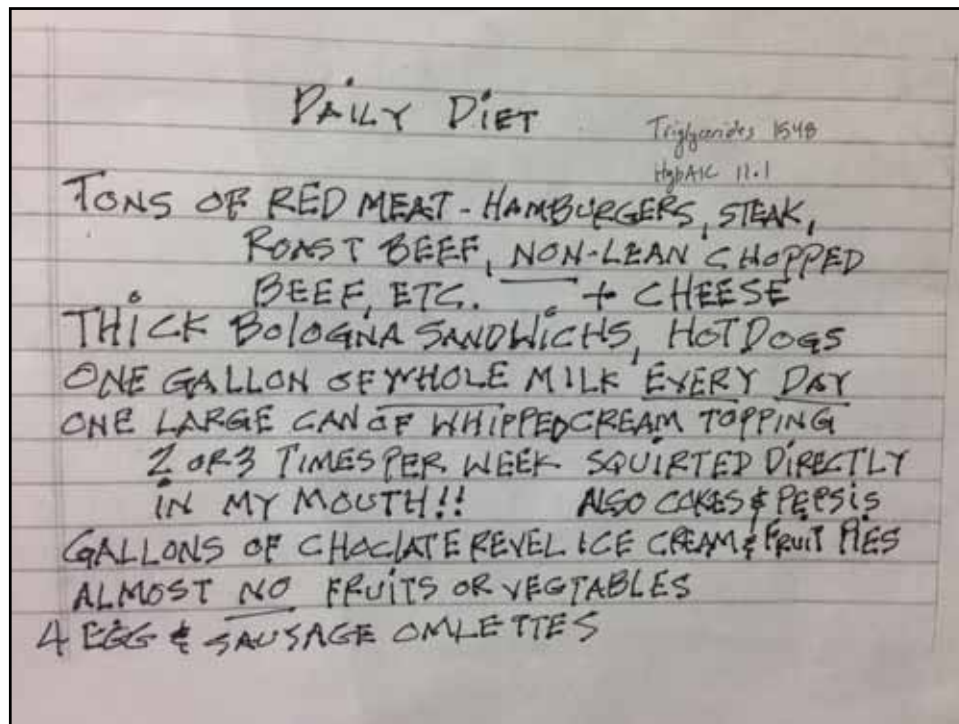 DAILY DIET
Triglycerides 1548
HgbA1C 11.1
TONS OF RED MEAT - HAMBURGERS, STEAK,
ROAST BEEF, NON-LEAN CHOPPED
BEEF, ETC. + CHEESE
THICK BOLOGNA SANDWICHS, HOT DOGS
ONE GALLON OF WHOLE MILK EVERY DAY
ONE LARGE CAN OF WHIPPED CREAM TOPPING
2 OR 3 TIMES PER WEEK SQUIRTED DIRECTLY
IN MY MOUTH!! ALSO COKES & PEPSIS
GALLONS OF CHOCLATE REVEL ICE CREAM & FRUIT PIES
ALMOST NO FRUITS OR VEGTABLES
4 EGG & SAUSAGE OMLETTES